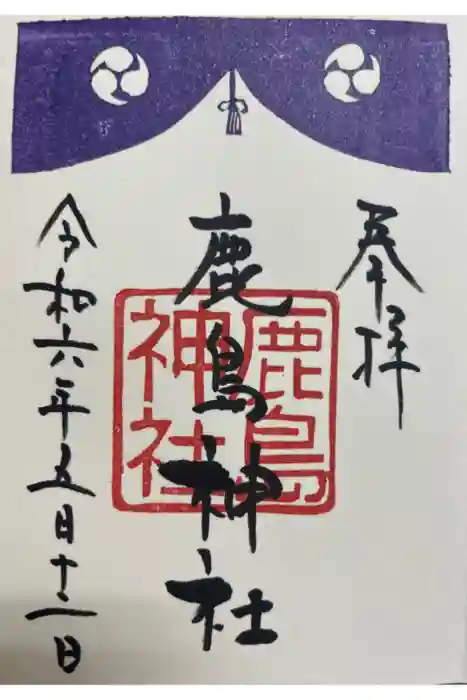 奉拝
鹿島神社
鹿島
神社
令和六年五月十二日